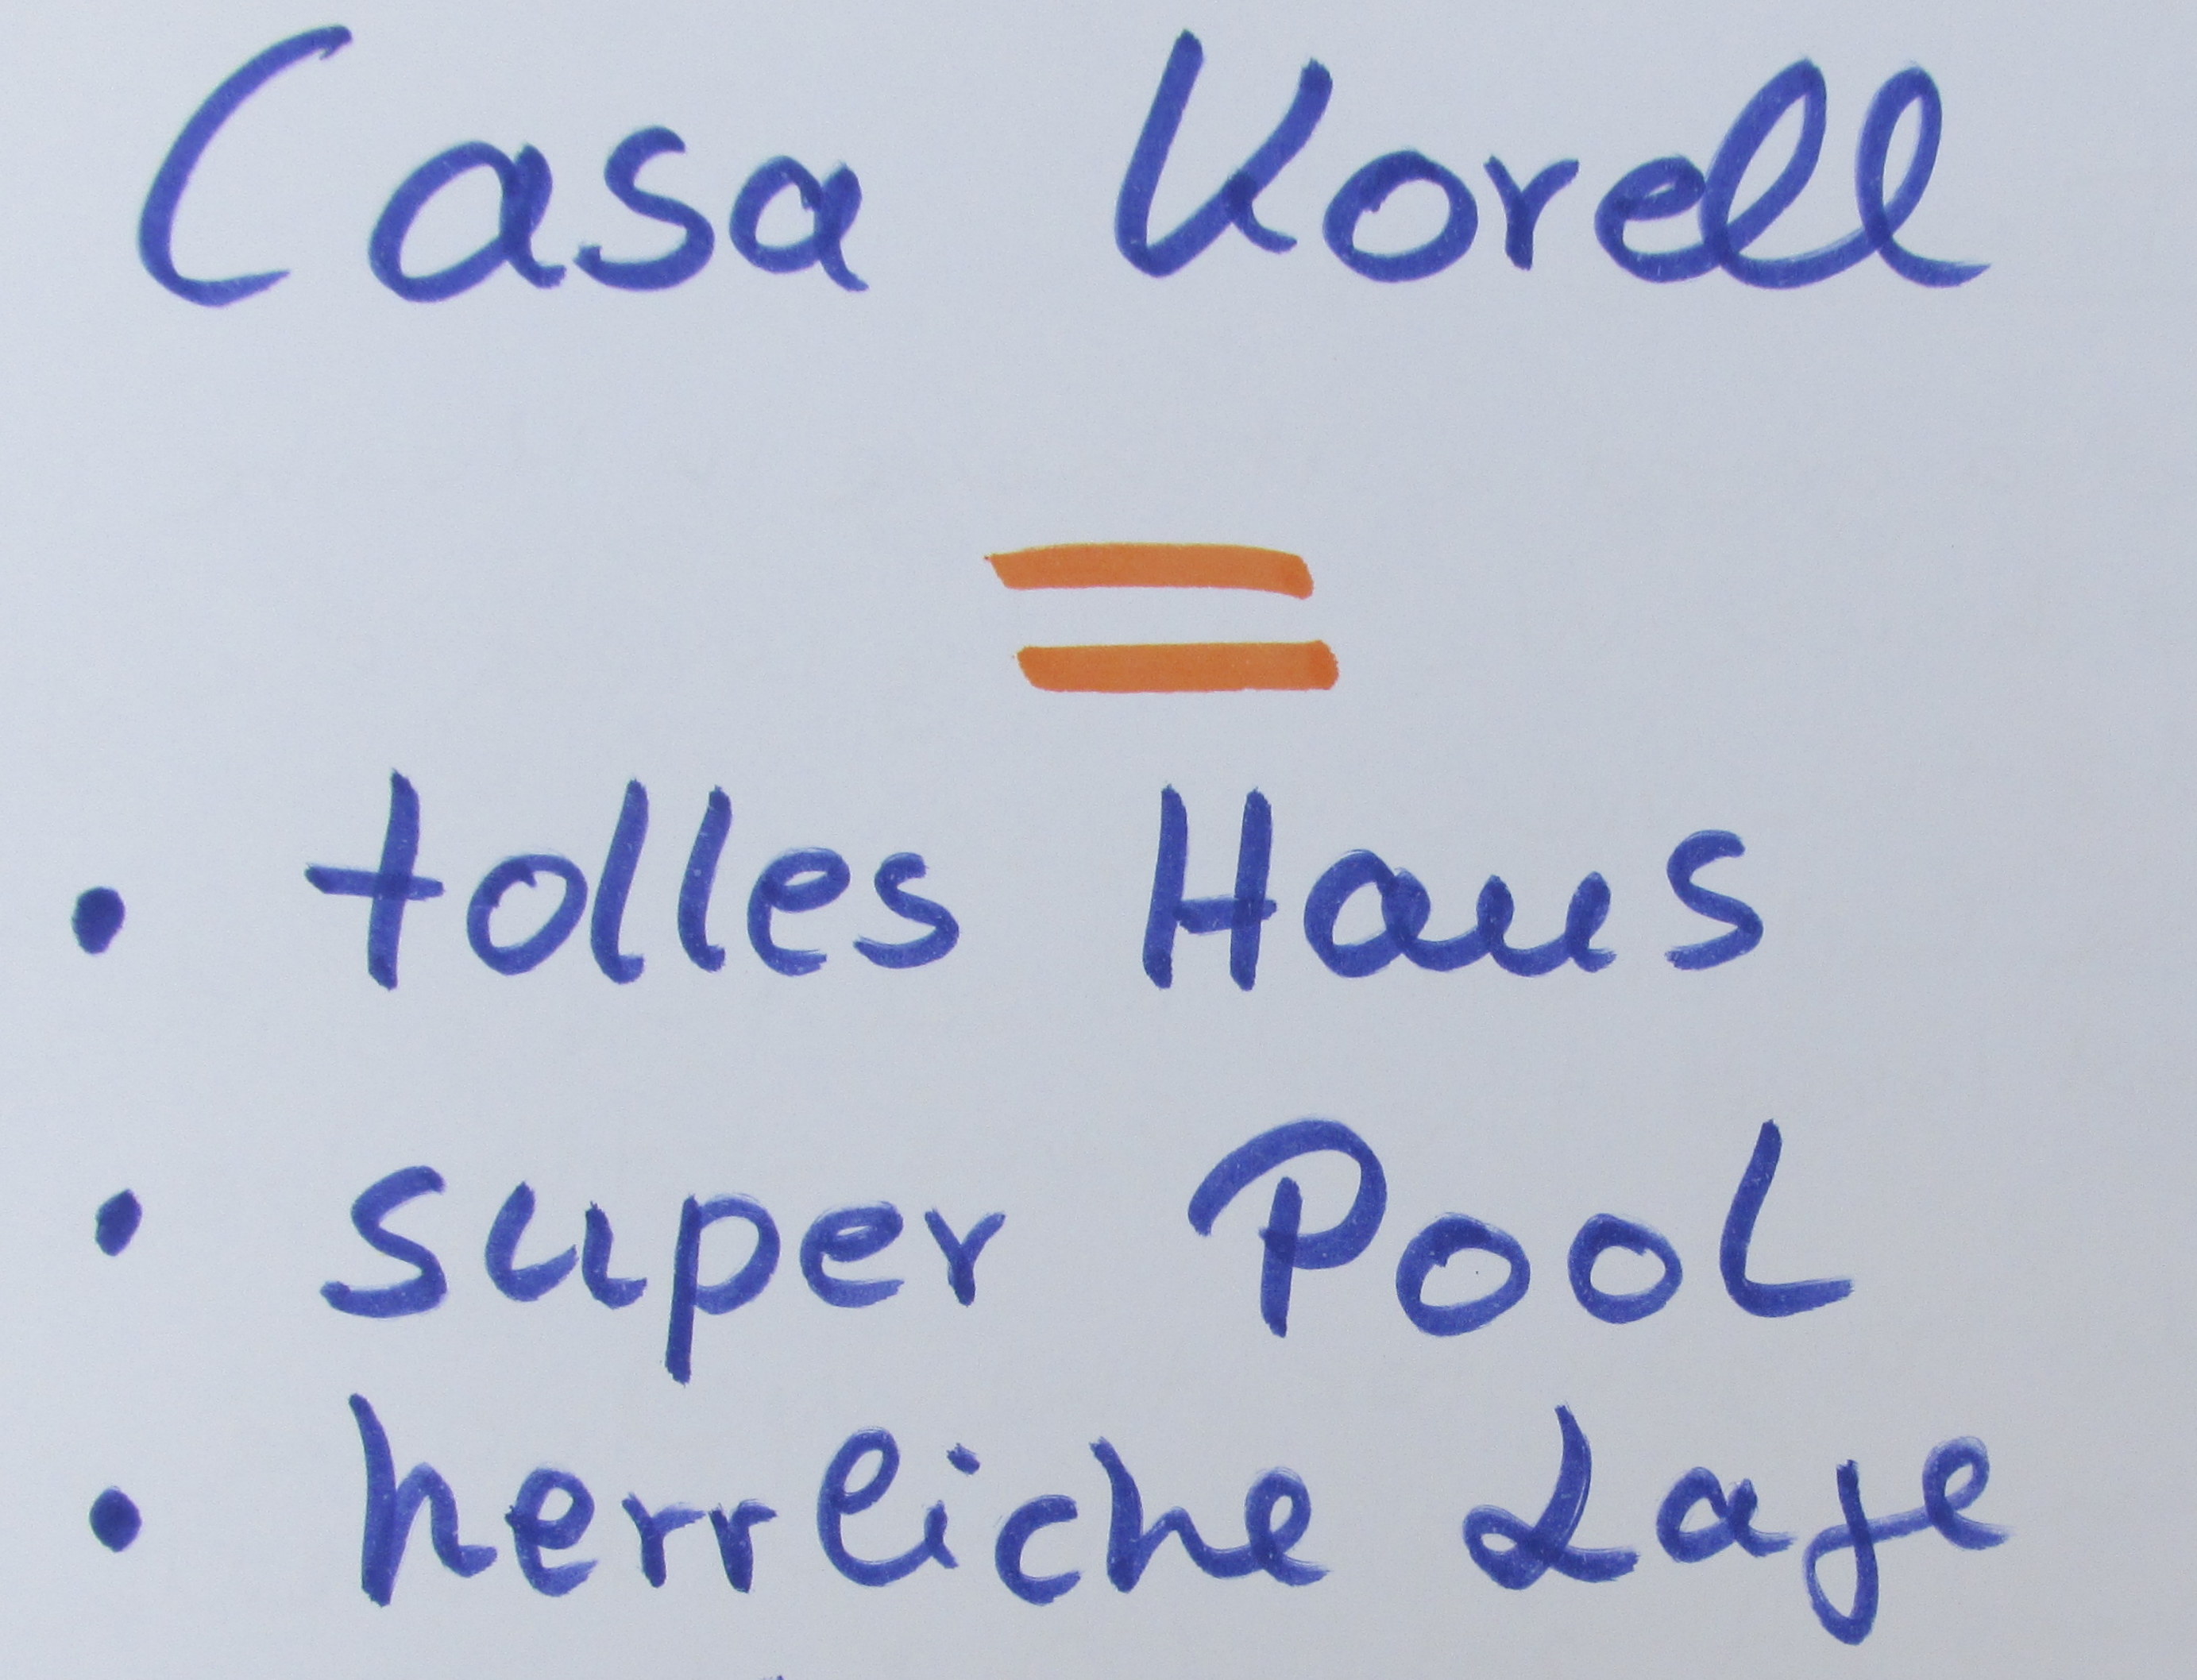 Casa Korell
=
• tolles Haus
• super Pool
• herrliche Lage